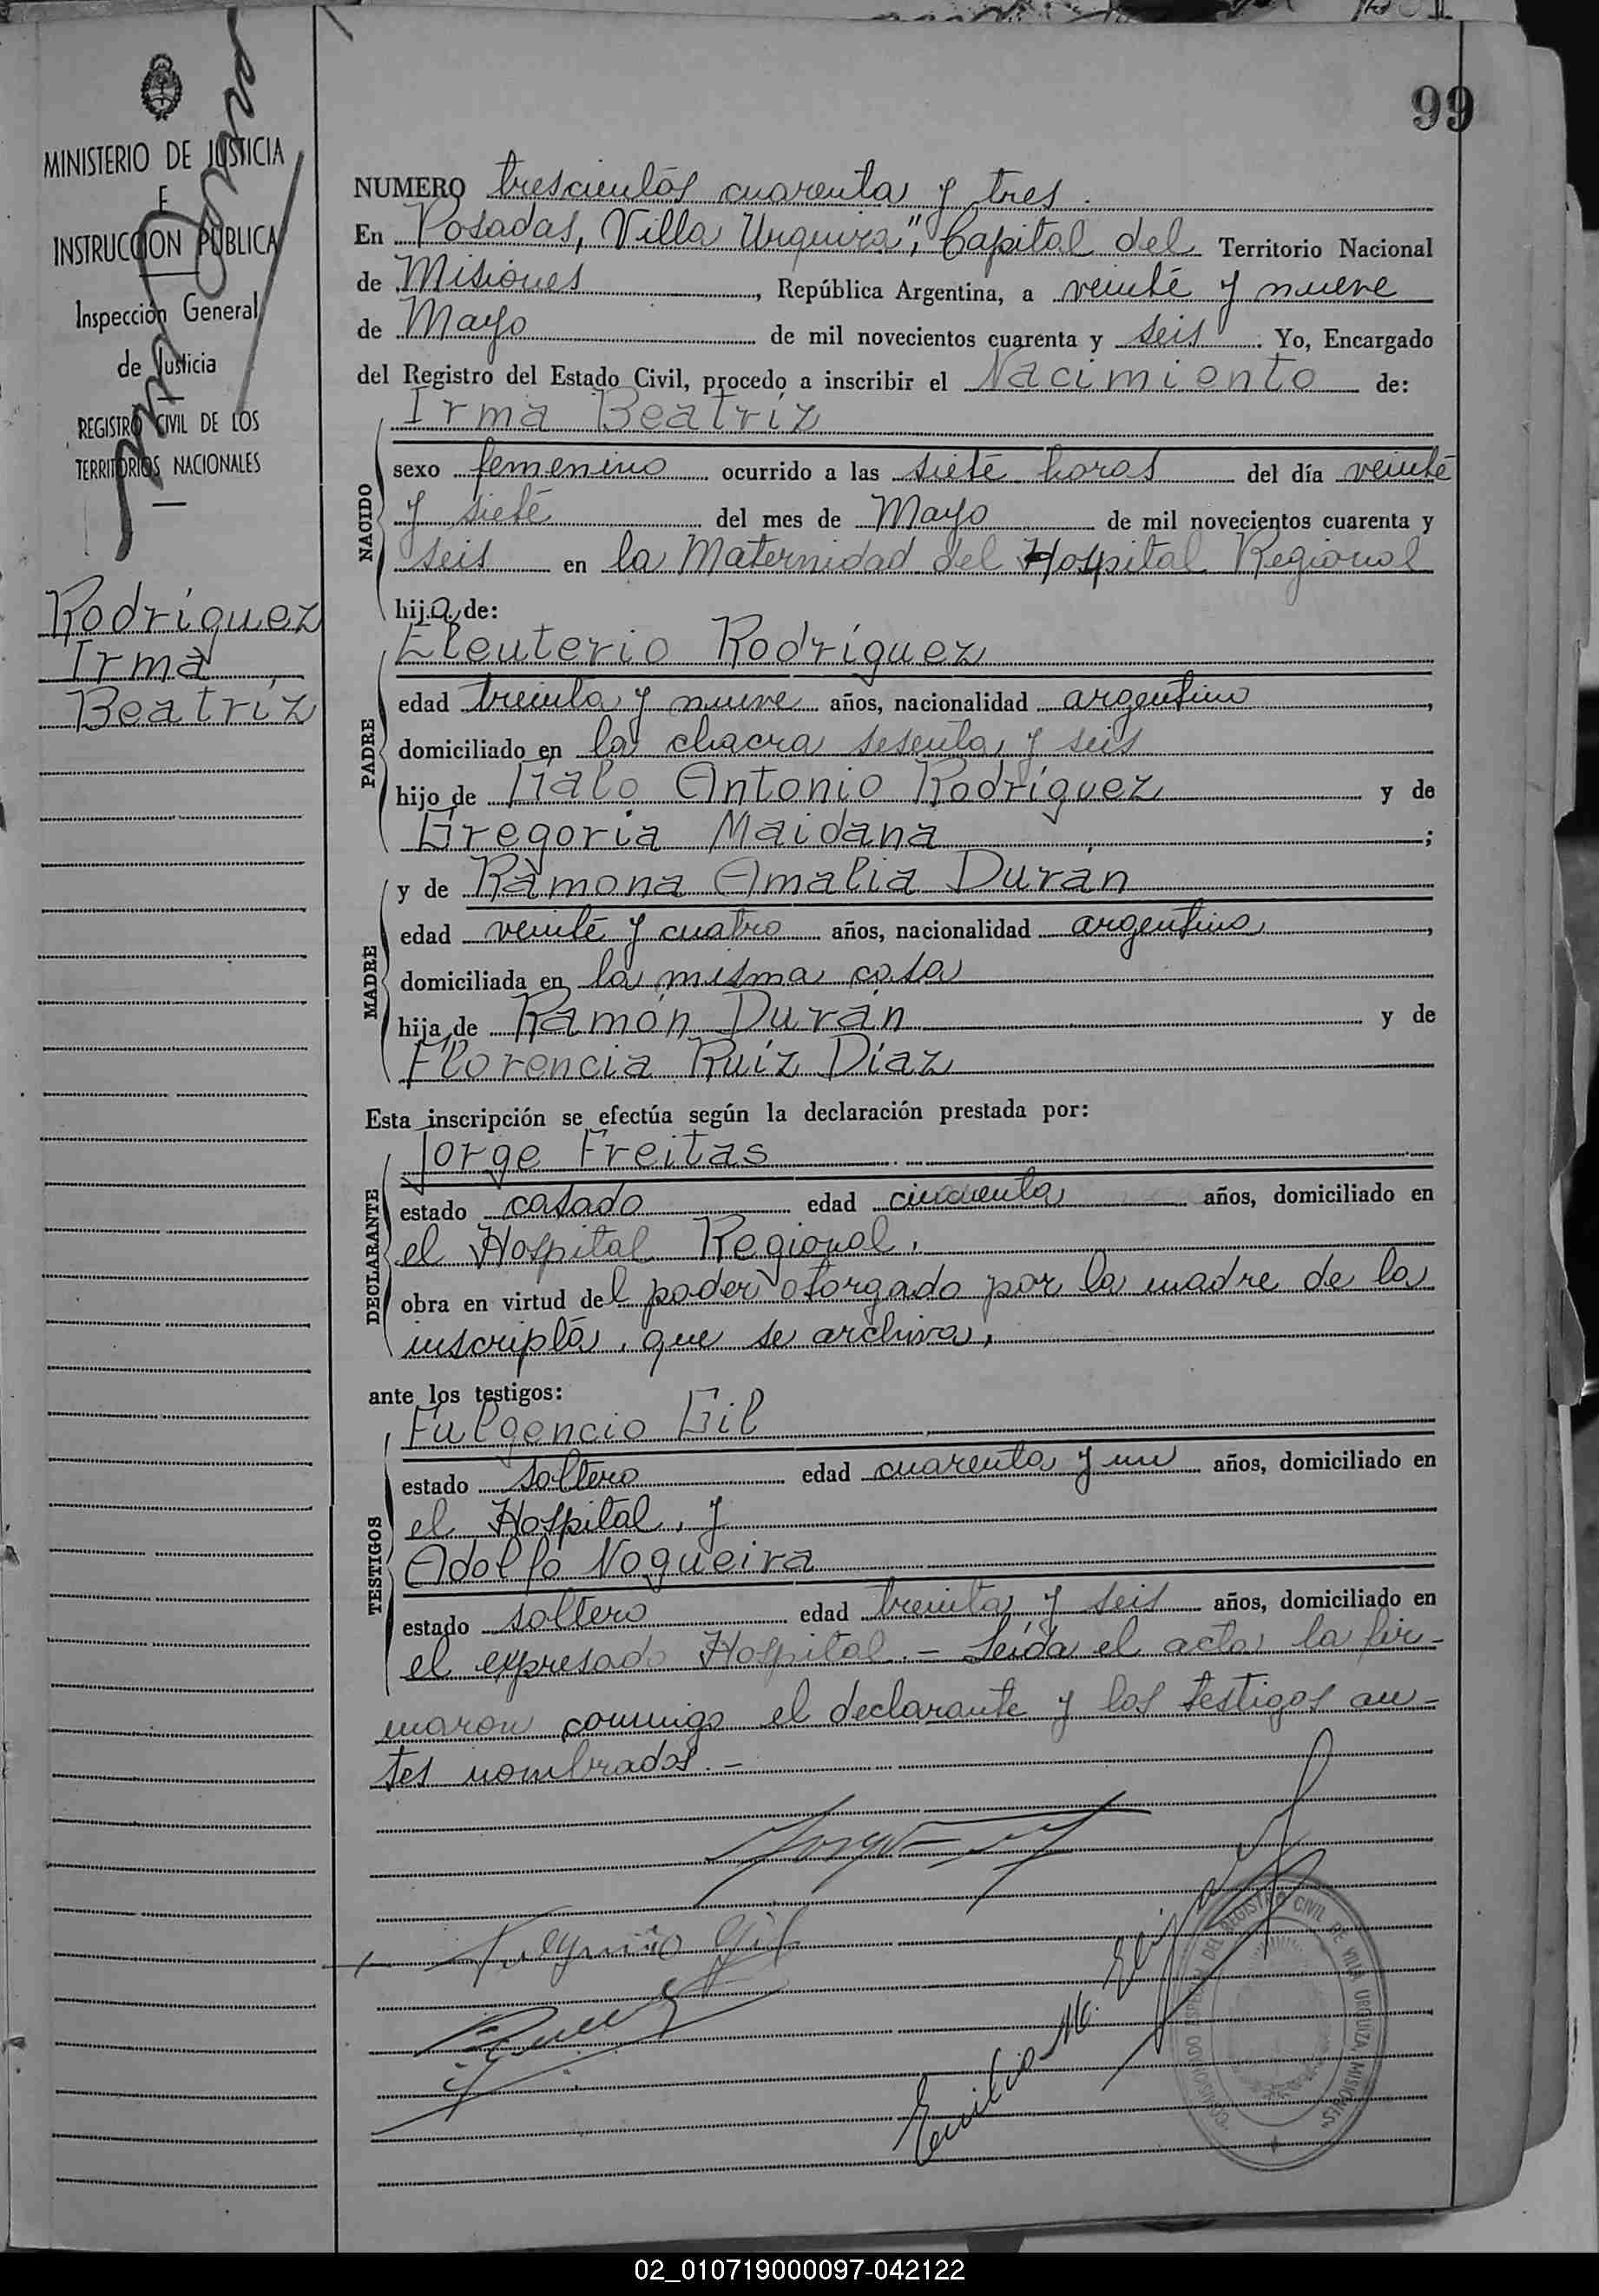 99
MINISTERIO DE JUSTICIA
E
INSTRUCCION PUBLICA
Inspección General
de Justicia
REGISTRO CIVIL DE LOS
TERRITORIOS NACIONALES
Rodríguez
Irma
Beatríz
NUMERO trescientos cuarenta y tres.
En Posadas, Villa Urquiza", Capital del Territorio Nacional
de Misiones, República Argentina, a veinte y nueve
de Mayo de mil novecientos cuarenta y seis. Yo, Encargado
del Registro del Estado Civil, procedo a inscribir el Nacimiento de:
Irma Beatríz
NACIDO
sexo femenino ocurrido a las siete horas del día veinte
y siete del mes de Mayo de mil novecientos cuarenta y
seis en la Maternidad del Hospital Regional
hija de:
Eleuterio Rodríguez
PADRE
edad treinta y nueve años, nacionalidad argentino,
domiciliado en la chacra sesenta y seis
hijo de Italo Antonio Rodríguez y de
Gregoria Maidana;
MADRE
y de Ramona Amalia Durán
edad veinte y cuatro años, nacionalidad argentina,
domiciliada en la misma casa
hija de Ramón Durán y de
Florencia Ruíz Díaz
Esta inscripción se efectúa según la declaración prestada por:
DECLARANTE
Jorge Freitas
estado casado edad cincuenta años, domiciliado en
el Hospital Regional,
obra en virtud del poder otorgado por la madre de la
inscripta, que se archiva,
ante los testigos:
TESTIGOS
Fulgencio Gil
estado soltero edad cuarenta y un años, domiciliado en
el Hospital, y
Adolfo Nogueira
estado soltero edad treinta y seis años, domiciliado en
el expresado Hospital.- Leída el acta la fir-
maron conmigo el declarante y los testigos an-
tes nombrados.-
Fulgencio Gil
Emilio M.
COMISIONADO ESPECIAL DEL REGISTRO CIVIL DE VILLA URQUIZA MISIONES
02_010719000097-042122